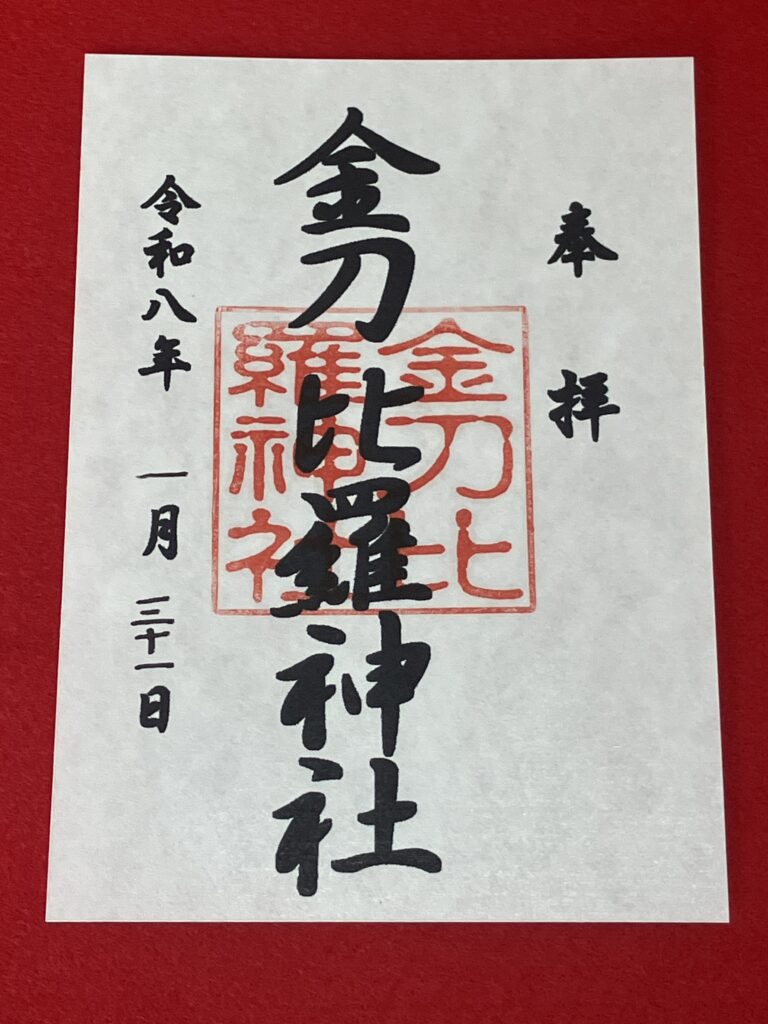 奉拝
金刀比羅神社
金刀比羅神社
令和八年 一月 三十一日